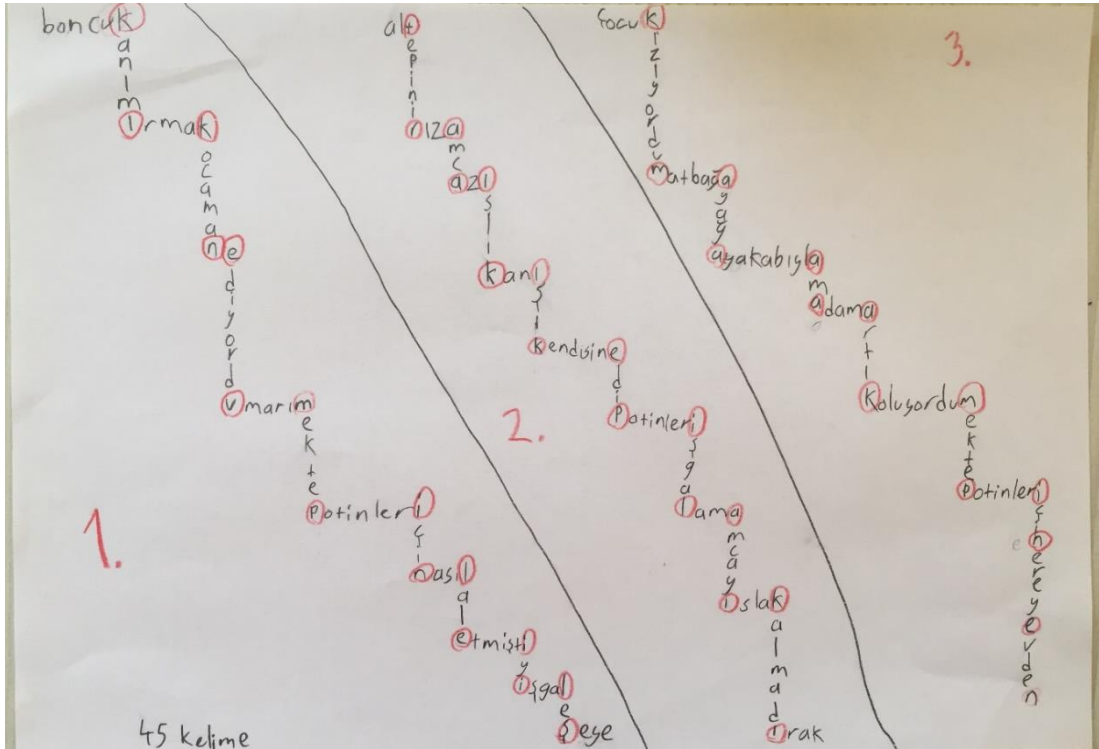 1.
boncuk
kanımı
ırmak
kocaman
ne
ediyordu
umarım
mektep
potinleri
için
nasıl
lale
etmişti
iyi
işgal
leş
şeye
45 kelime
2.
alt
tepinir
rıza
amca
azı
ıslık
kanı
ışık
kendisine
edip
potinleri
işgal
lama
amcayı
ıslak
kalmadı
ırak
3.
focuk
kızıyordum
matbağa
ayakabıyla
ama
adama
artık
koluyordum
mektep
potinleri
işh
hereye
evden